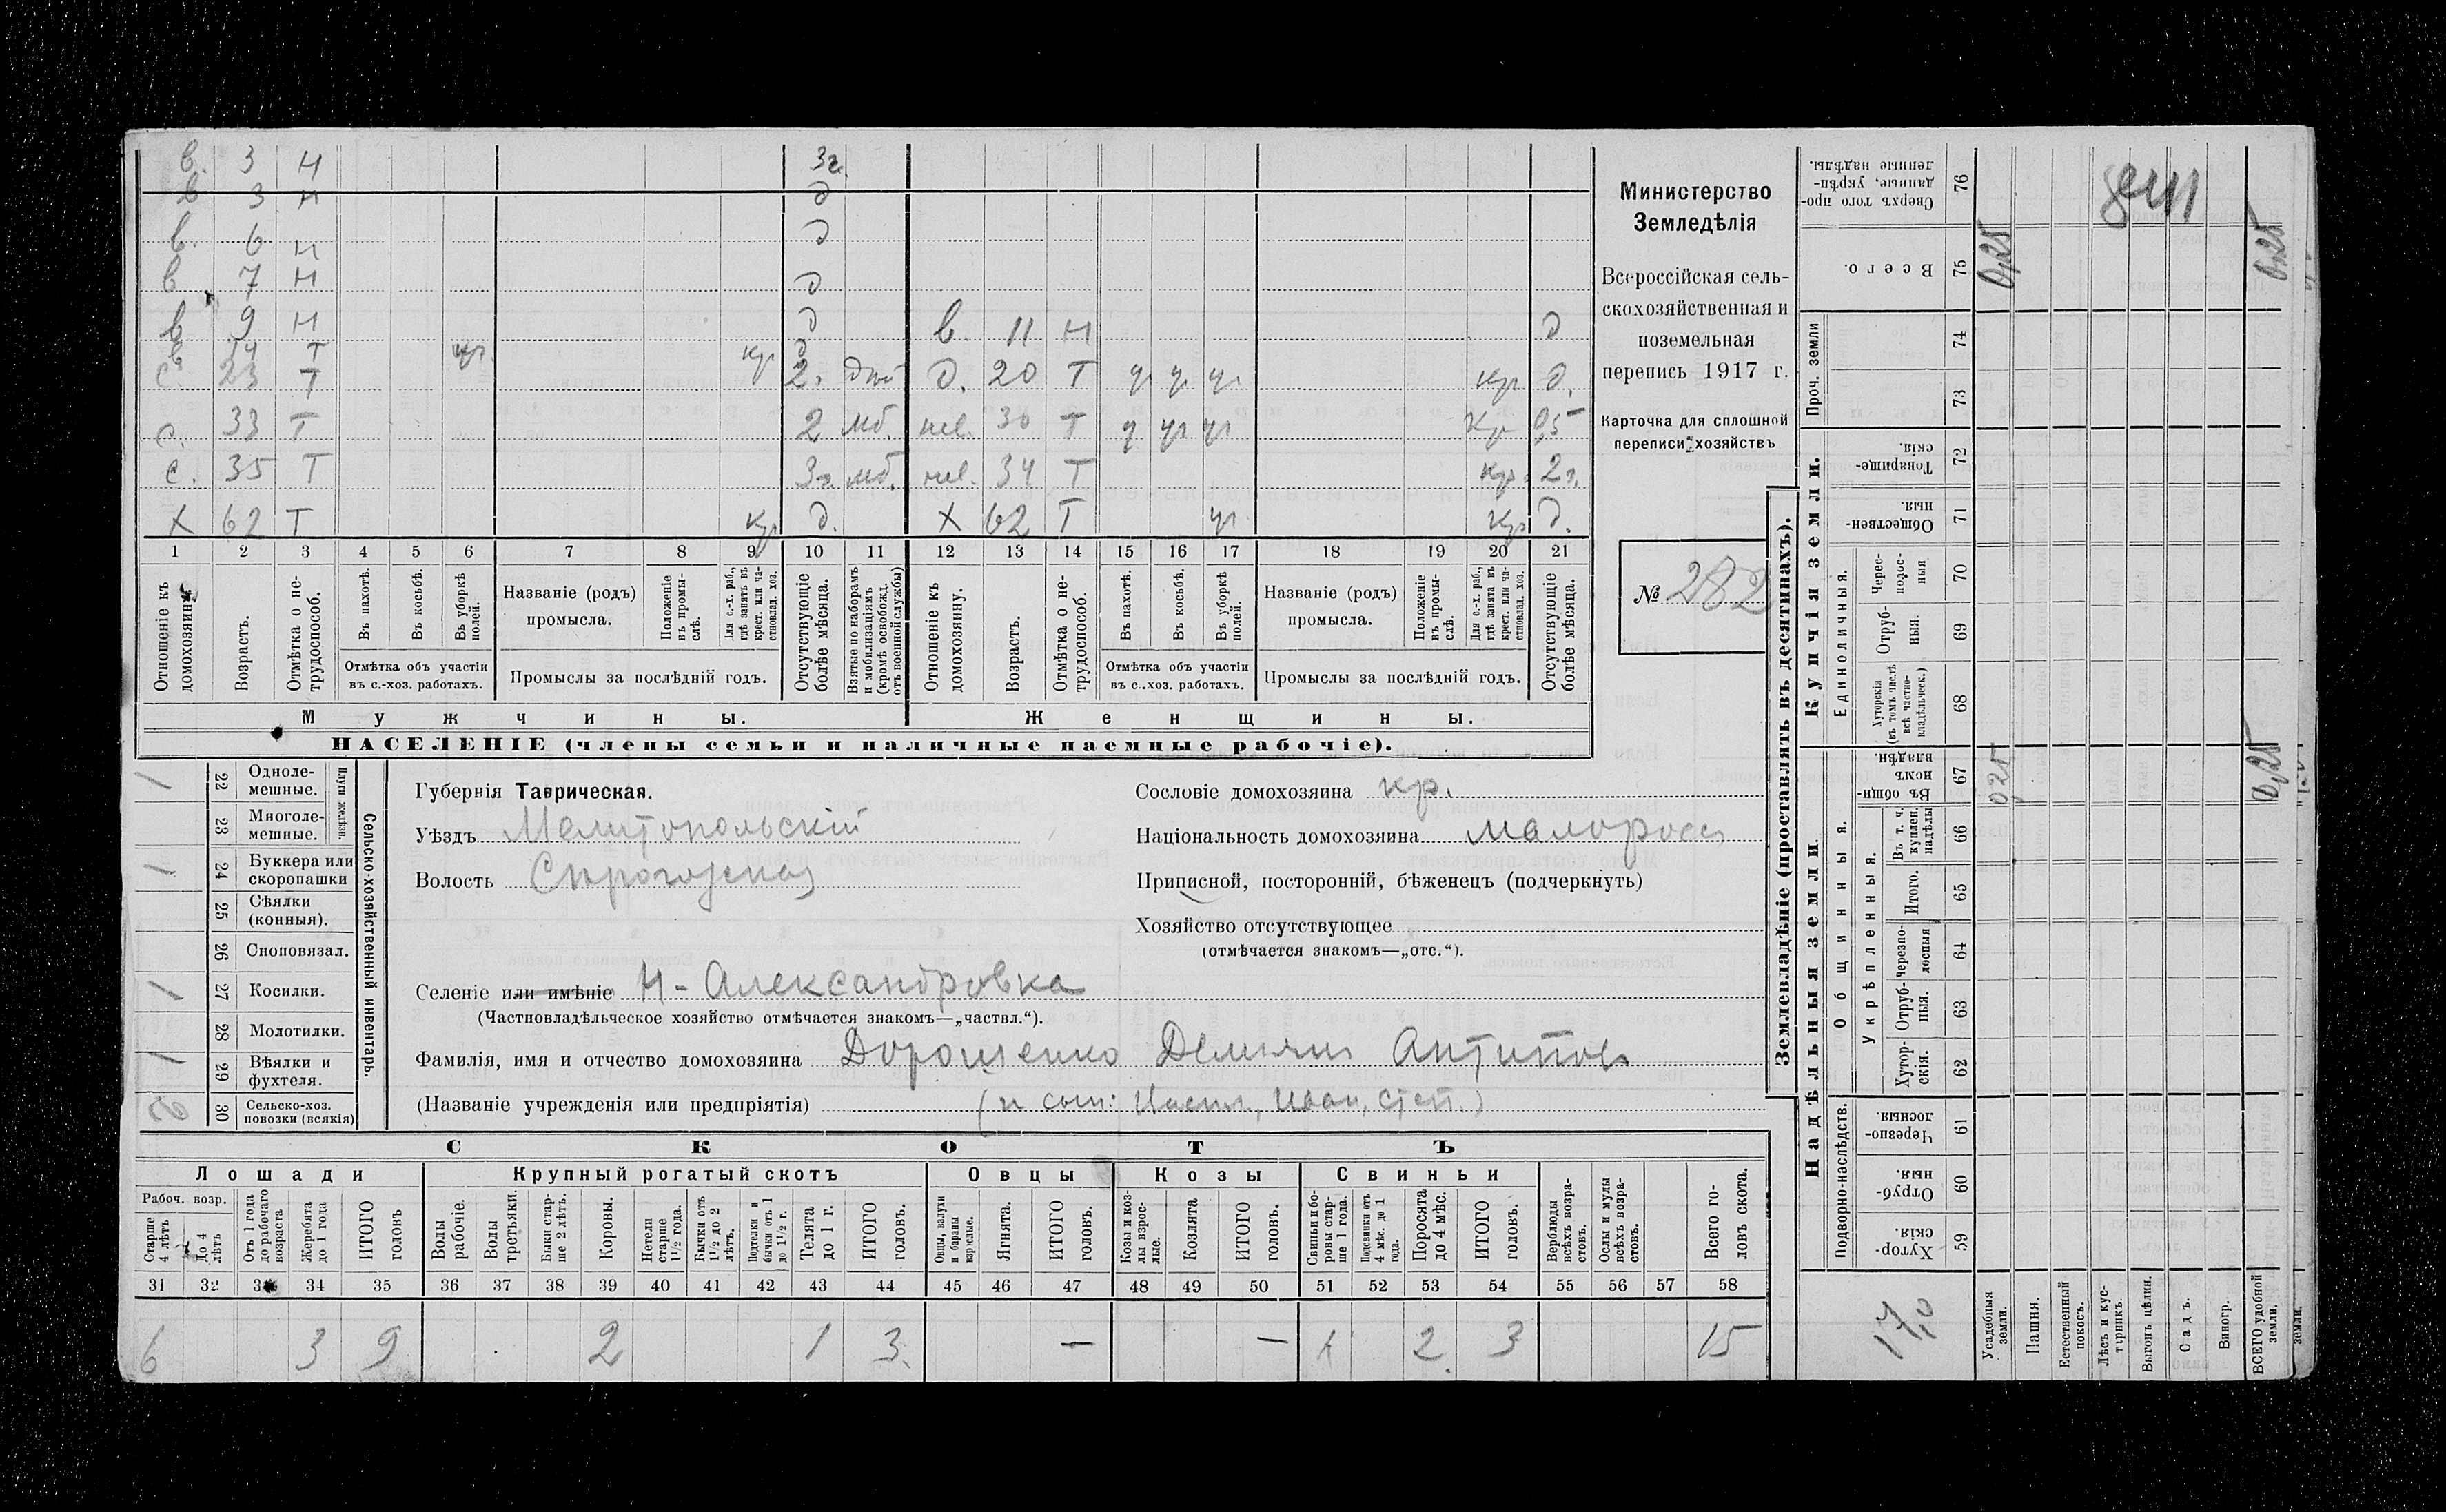 в. 3 н 3г.
в 3 н д
в. 6 н д
в 7 н д
в 9 н д в. 11 н д
в 14 т кр д
с 23 т 2. д. 20 т кр д.
с. 33 т 2 мб. нев. 30 т кр 0,5
с. 35 т 3г. мб. нев. 34 т кр. 2г.
х 62 т кр д. х 62 т кр д.
1 2 3 4 5 6 7 8 9 10 11 12 13 14 15 16 17 18 19 20 21
Отношеніе къ домохозяину.
Возрастъ.
Отмѣтка о не-трудоспособ.
Въ пахотѣ.
Въ косьбѣ.
Въ уборкѣ полей.
Отмѣтка объ участіи въ с.-хоз. работахъ.
Названіе (родъ) промысла.
Положеніе въ промы-слѣ.
Для с.-х. раб., гдѣ занятъ въ крест. или ча-стновлад. хоз.
Промыслы за послѣдній годъ.
Отсутствующіе болѣе мѣсяца.
Взятые по наборамъ и мобилизаціямъ (кромѣ освобожд. отъ военной службы)
Отношеніе къ домохозяину.
Возрастъ.
Отмѣтка о не-трудоспособ.
Въ пахотѣ.
Въ косьбѣ.
Въ уборкѣ полей.
Отмѣтка объ участіи въ с.-хоз. работахъ.
Названіе (родъ) промысла.
Положеніе въ промы-слѣ.
Для с.-х. раб., гдѣ занята въ крест. или ча-стновлад. хоз.
Промыслы за послѣдній годъ.
Отсутствующіе болѣе мѣсяца.
Мужчины. Женщины.
НАСЕЛЕНІЕ (члены семьи и наличные наемные рабочіе).
Министерство
Земледѣлія
Всероссійская сель-
скохозяйственная и
поземельная
перепись 1917 г.
Карточка для сплошной
переписи хозяйствъ
№ 282
Сельско-хозяйственный инвентарь.
Плуги желѣзн.
1 22 Одноле-мешные.
23 Многоле-мешные.
1 24 Буккера или скоропашки
25 Сѣялки (конныя).
26 Сноповязал.
1 27 Косилки.
28 Молотилки.
1 29 Вѣялки и фухтеля.
2 30 Сельско-хоз. повозки (всякія)
Губернія Таврическая.
Уѣздъ Мелитопольскій
Волость
Сословіе домохозяина кр.
Національность домохозяина малоросс
Приписной, посторонній, бѣженецъ (подчеркнуть)
Хозяйство отсутствующее
(отмѣчается знакомъ—„отс.“).
Селеніе или имѣніе Н-Александровка
(Частновладѣльческое хозяйство отмѣчается знакомъ—„частвл.“).
Фамилія, имя и отчество домохозяина Дорошенко Демьян Антипов
(Названіе учрежденія или предпріятія) (и сын: Иван, Степ.)
СКОТЪ
Лошади Крупный рогатый скотъ Овцы Козы Свиньи
Рабоч. возр.
Старше 4 лѣтъ
До 4 лѣтъ
Отъ 1 года до рабочаго возраста
Жеребята до 1 года
ИТОГО головъ
Волы рабочіе.
Волы третьяки.
Быки стар-ше 2 лѣтъ.
Коровы.
Нетели старше 1½ года.
Бычки отъ 1½ до 2 лѣтъ.
Подтелки и бычки отъ 1 до 1½ г.
Телята до 1 г.
ИТОГО головъ.
Овцы, валухи и бараны взрослые.
Ягнята.
ИТОГО головъ.
Козы и коз-лы взрос-лые.
Козлята
ИТОГО головъ.
Свиньи и бо-ровы стар-ше 1 года.
Подсвинки отъ 4 мѣс. до 1 года.
Поросята до 4 мѣс.
ИТОГО головъ.
Верблюды всѣхъ возра-стовъ.
Ослы и мулы всѣхъ возра-стовъ.
Всего го-ловъ скота.
31 32 33 34 35 36 37 38 39 40 41 42 43 44 45 46 47 48 49 50 51 52 53 54 55 56 57 58
6 3 9 2 1 3. — — 1 2. 3 15
Землевладѣніе (проставлять въ десятинахъ).
Купчія земли.
Надѣльныя земли.
76 Сверхъ того про-данные, укрѣп-ленные надѣлы.
75 Всего. 0,25 0,25
Проч. земли
74
73
72 Товарище-скія
71 Обществен-ныя.
Единоличныя.
70 Черес-полос-ныя
69 Отруб-ныя.
68 Хуторскія (въ томъ числѣ всѣ частно-владѣльческ.)
Общинныя.
67 Въ общи-номъ владѣн. 0,25 0,25
Укрѣпленныя.
66 Въ т. ч. куплен. надѣлы
65 Итого.
64 Черезпо-лосныя
63 Отруб-ныя.
62 Хутор-скія.
Подворно-наслѣдств.
61 Черезпо-лосныя.
60 Отруб-ныя.
59 Хутор-скія.
17,0
Усадебныя земли.
Пашня.
Естественный покосъ.
Лѣсъ и кус-тарникъ.
Выгонъ цѣлин.
Садъ.
Виногр.
ВСЕГО удобной земли.
земли.